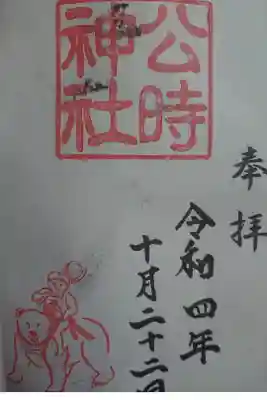 公時
神社
奉拝
令和四年
十月二十二日